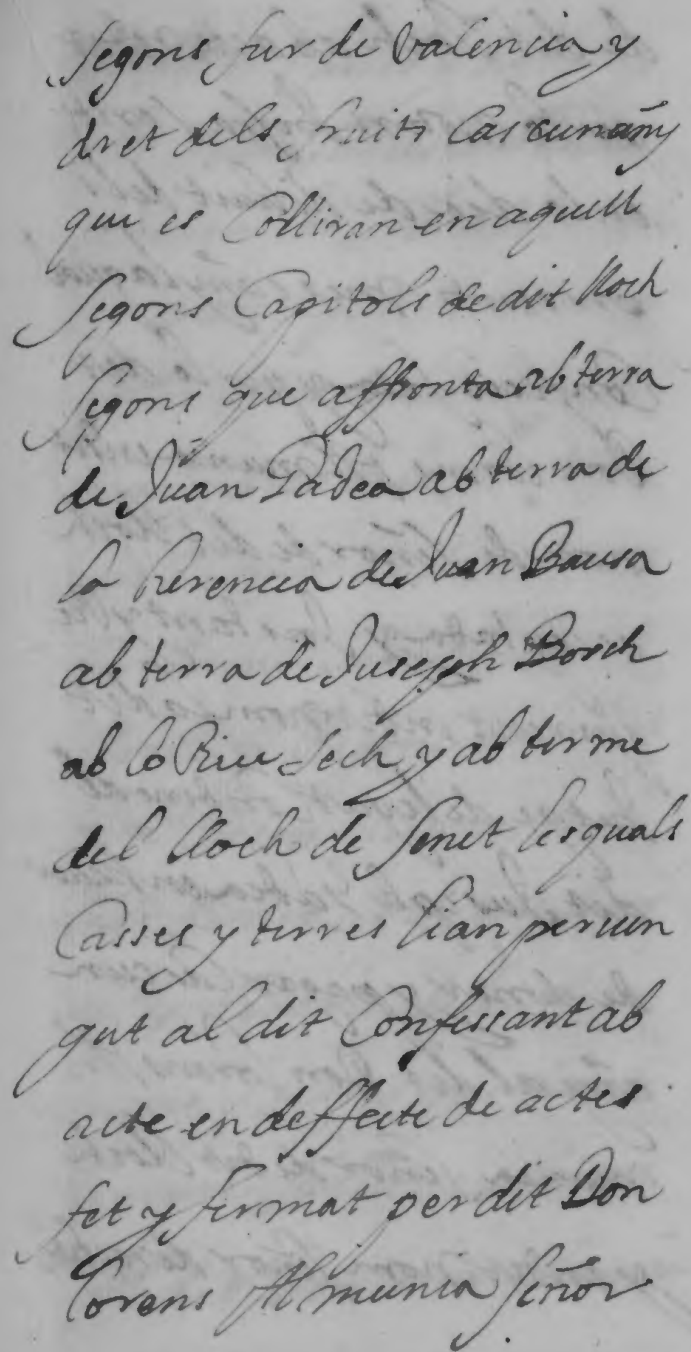 segons fur de Valencia y
dret dels fruits Cascunañy
que es Colliran en aquell
segons Capitols de dit lloch
segons que affronta ab terra
de Juan Padea ab terra de
la herencia de Juan Bausa
ab terra de Juseph Borch
ab lo Riu sech y ab terme
del lloch de senet lesquals
Casses y terres lian pervin
gut al dit Confessant ab
acte en deffecte de actes
fet y fermat per dit Don
Lorens Almunia señor